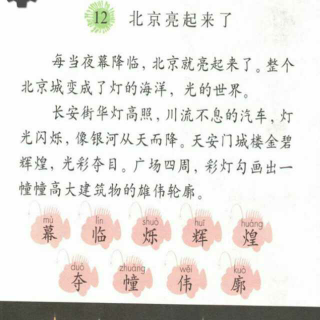 12 北京亮起来了
每当夜幕降临，北京就亮起来了。整个
北京城变成了灯的海洋，光的世界。
长安街华灯高照，川流不息的汽车，灯
光闪烁，像银河从天而降。天安门城楼金碧
辉煌，光彩夺目。广场四周，彩灯勾画出一
幢幢高大建筑物的雄伟轮廓。
mù lín shuò huī huáng
幕 临 烁 辉 煌
duó zhuàng wěi kuò
夺 幢 伟 廓